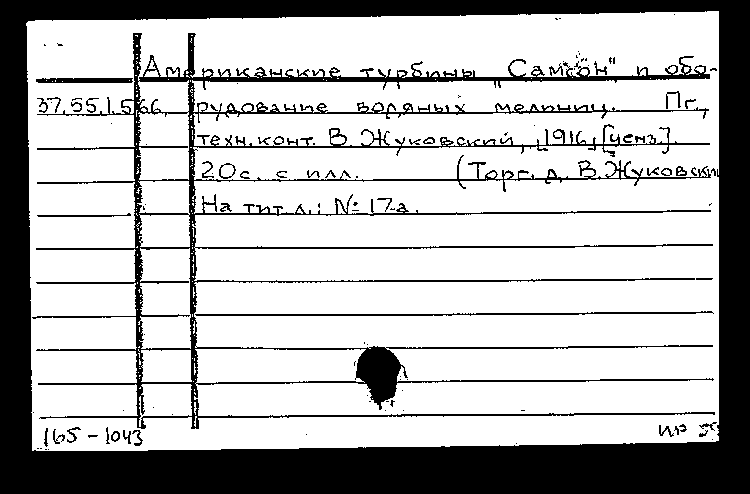 Американские турбины „Самсон" и обо-
37.55.1.566. рудование водяных мельниц. Пг.,
техн. конт. В. Жуковский, [1916], [ценз.].
20 с. с илл. (Торг. д. В. Жуковский
На тит. л.: № 17-а.
165-1043